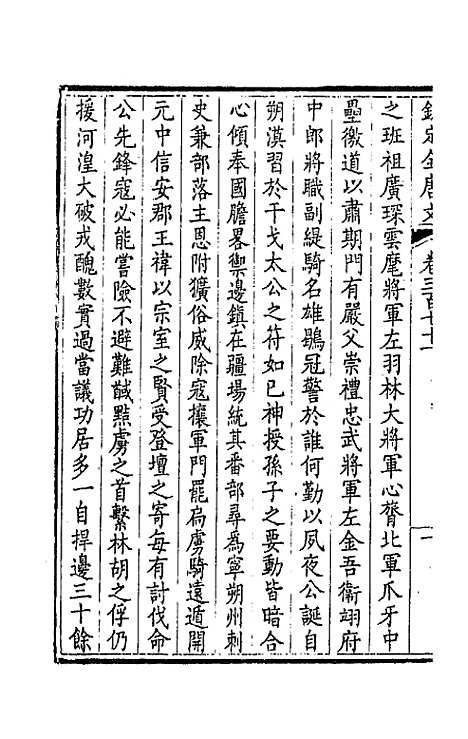 欽定全唐文 卷三百七十一 一
之班祖廣琛雲麾將軍左羽林大將軍心膂北軍爪牙中
壘徼道以肅期門有嚴父崇禮忠武將軍左金吾衛翊府
中郎將職副緹騎名雄鶡冠警於誰何勤以夙夜公誕自
朔漠習於干戈太公之符如已神授孫子之要動皆暗合
心傾奉國膽畧禦邊鎮在疆場統其番部尋爲寧朔州刺
史兼部落主恩附獷俗威除寇攘軍門罷扃虜騎遠遁開
元中信安郡王禕以宗室之賢受登壇之寄每有討伐命
公先鋒寇必能嘗險不避難馘㸃虜之首繫林胡之俘仍
援河湟大破戎醜數實過當議功居多一自捍邊三十餘